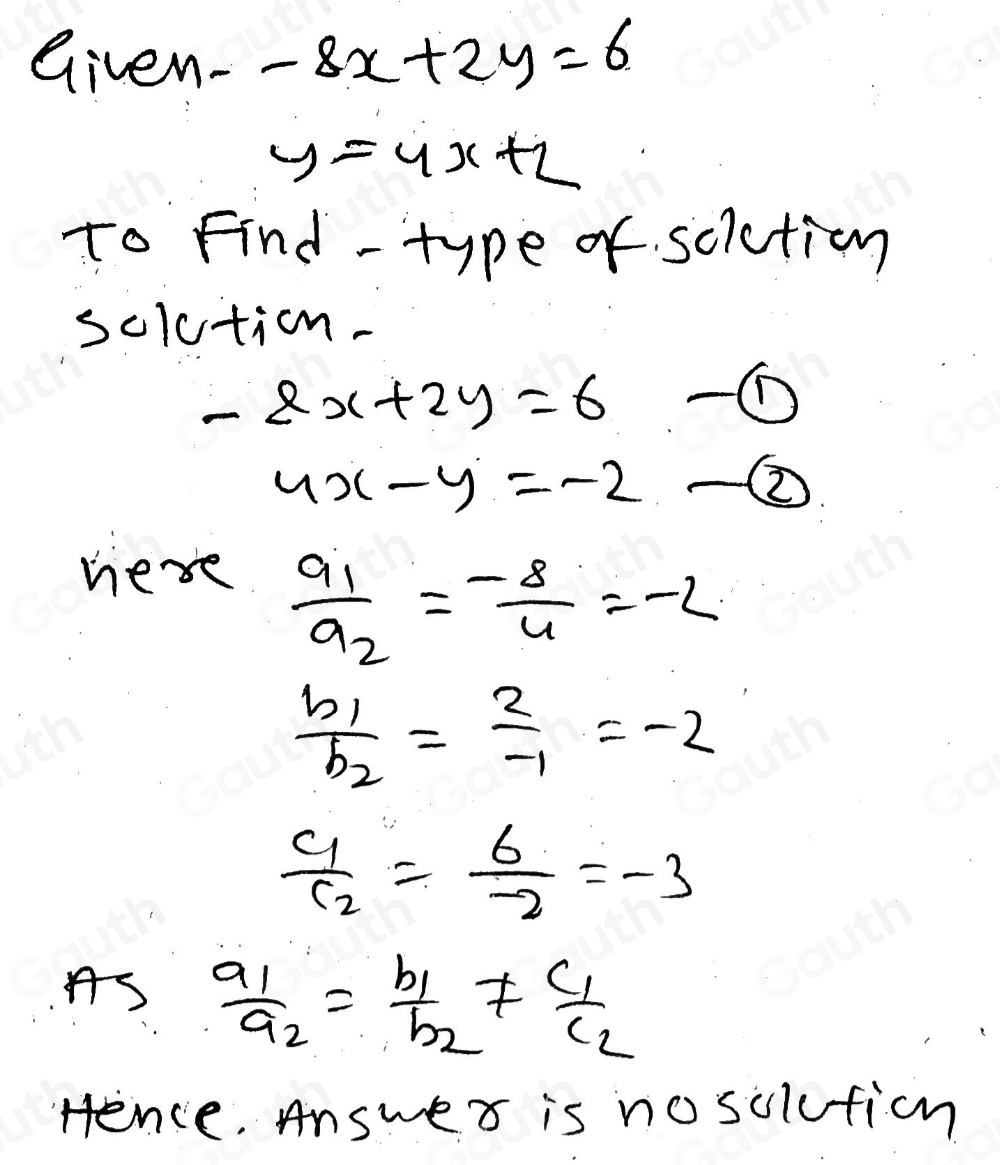 Given - -8x+2y=6
y=4x+2
To Find - type of solution
solution -
-8x+2y=6 -①
4x-y=-2 -②
here a₁/a₂ = -8/4 = -2
b₁/b₂ = 2/-1 = -2
c₁/c₂ = 6/-2 = -3
As a₁/a₂ = b₁/b₂ ≠ c₁/c₂
Hence. Answer is no solution